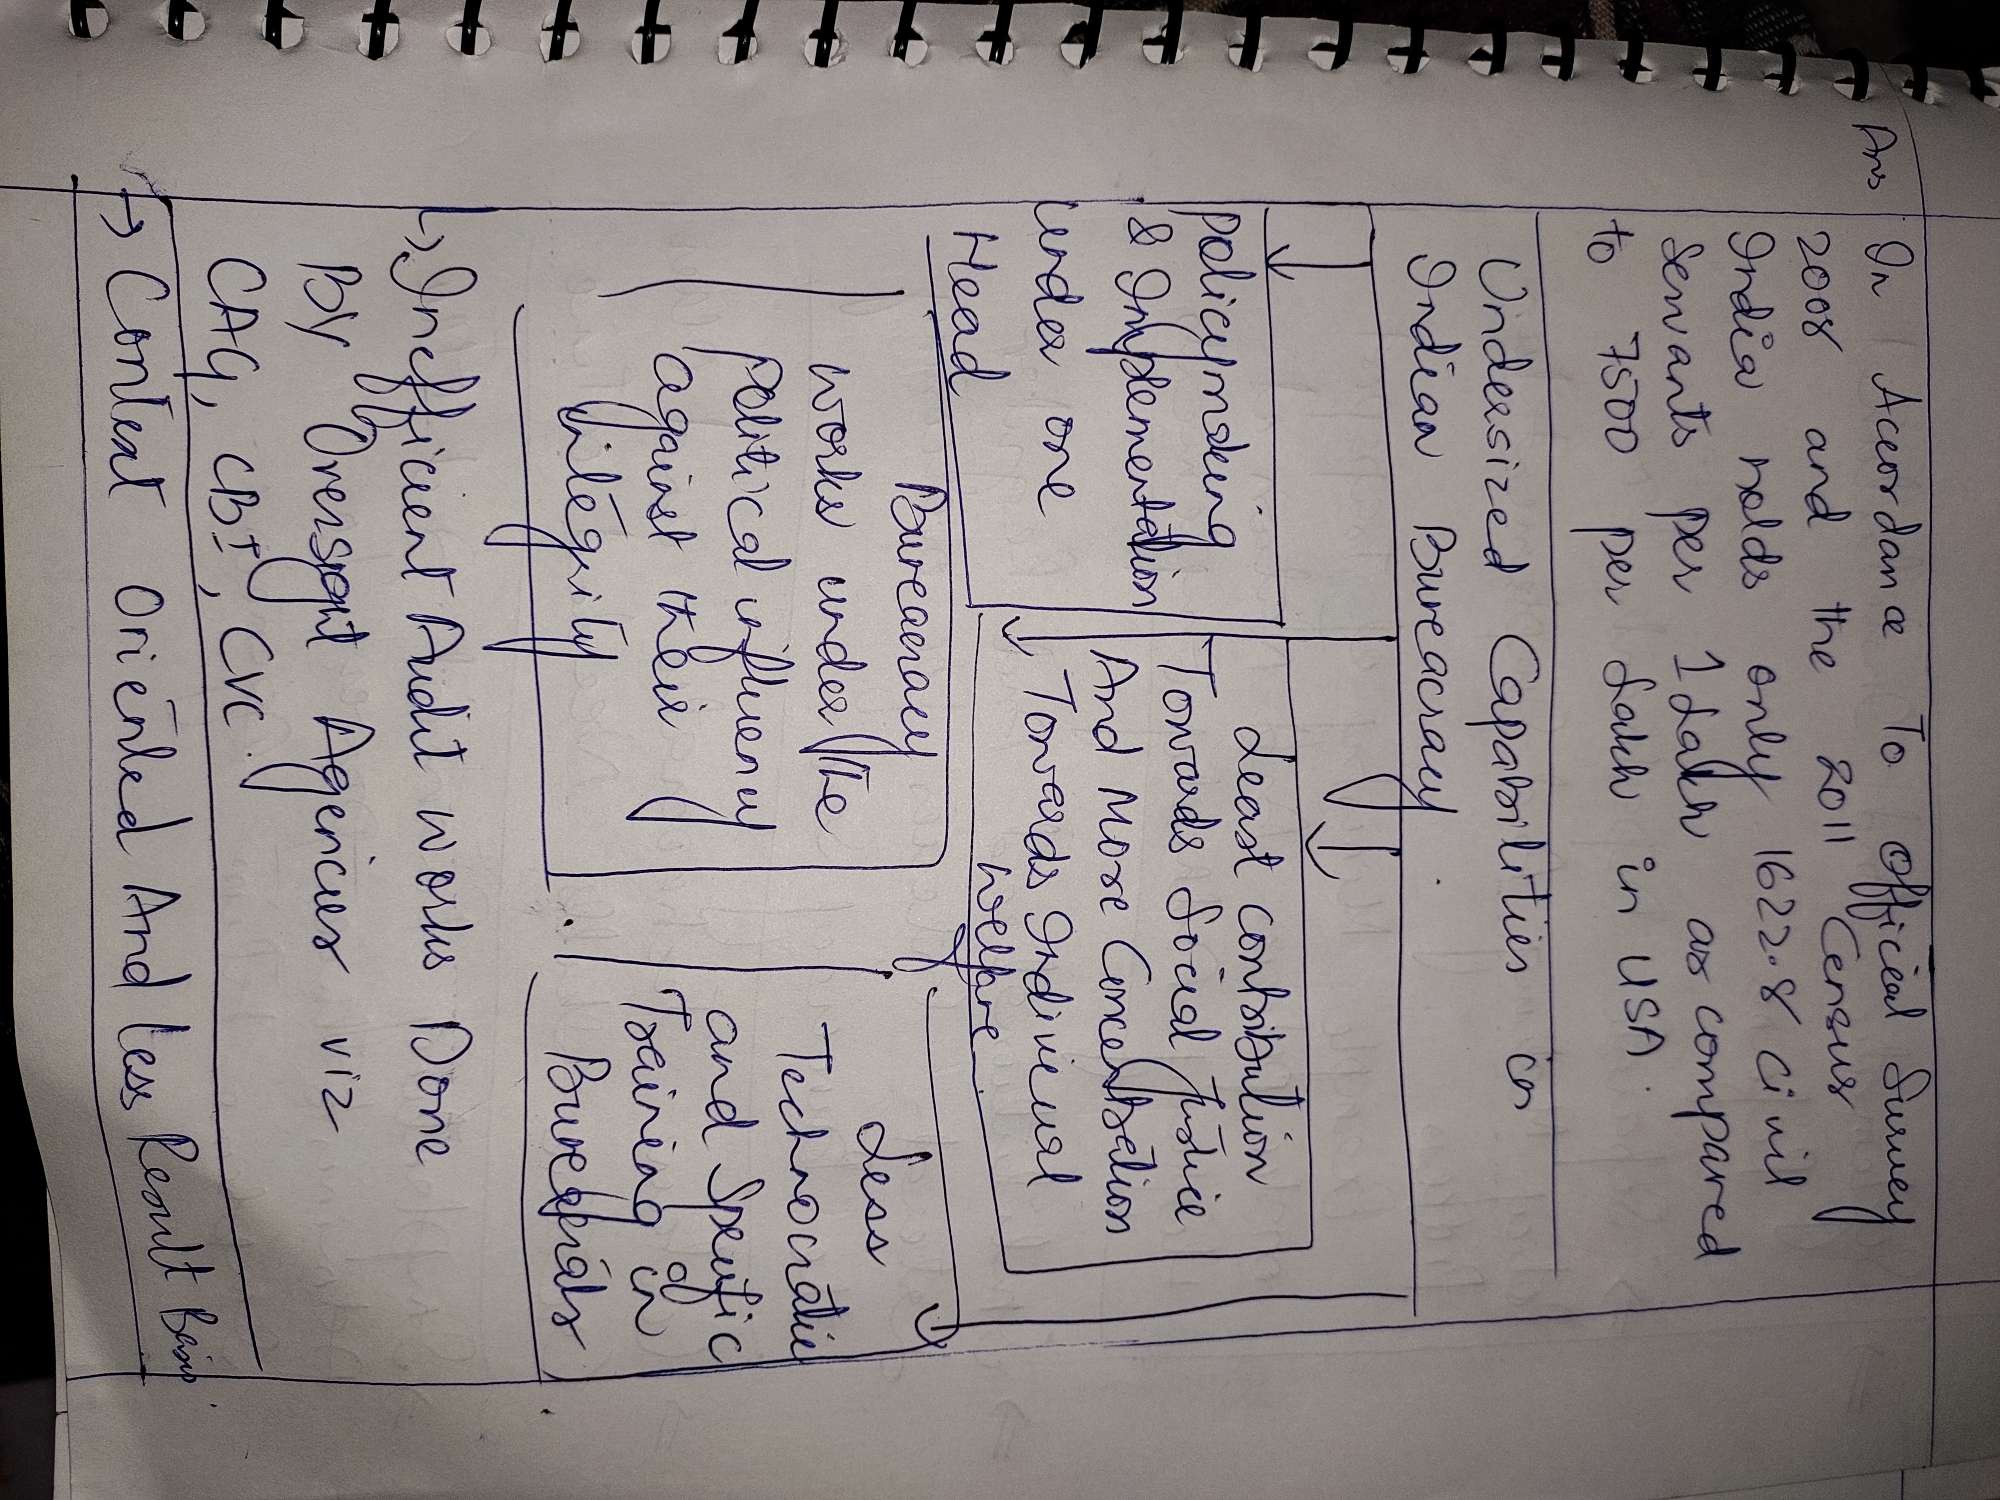 Ans
In Accordance To official Survey
2008 and the 2011 Census
India holds only 1622.8 civil
Servants per 1 Lakh as compared
to 7500 per Lakh in USA.
Undersized Capabilities in
Indian Bureacracy.
Policymaking
& Implementation
under one
Head
Least contribution
Towards Social Justice
And More Concentration
Towards Indivieual
welfare.
Bureacracy
works under the
Political influency
against their
integrity
Less
Technocratic
and Specific
Training in
Bureacrats
→ Inefficient Audit works Done
By Oversight Agencies viz
CAG, CBI, CVC.
→ Context Oriented And Less Result Basis.